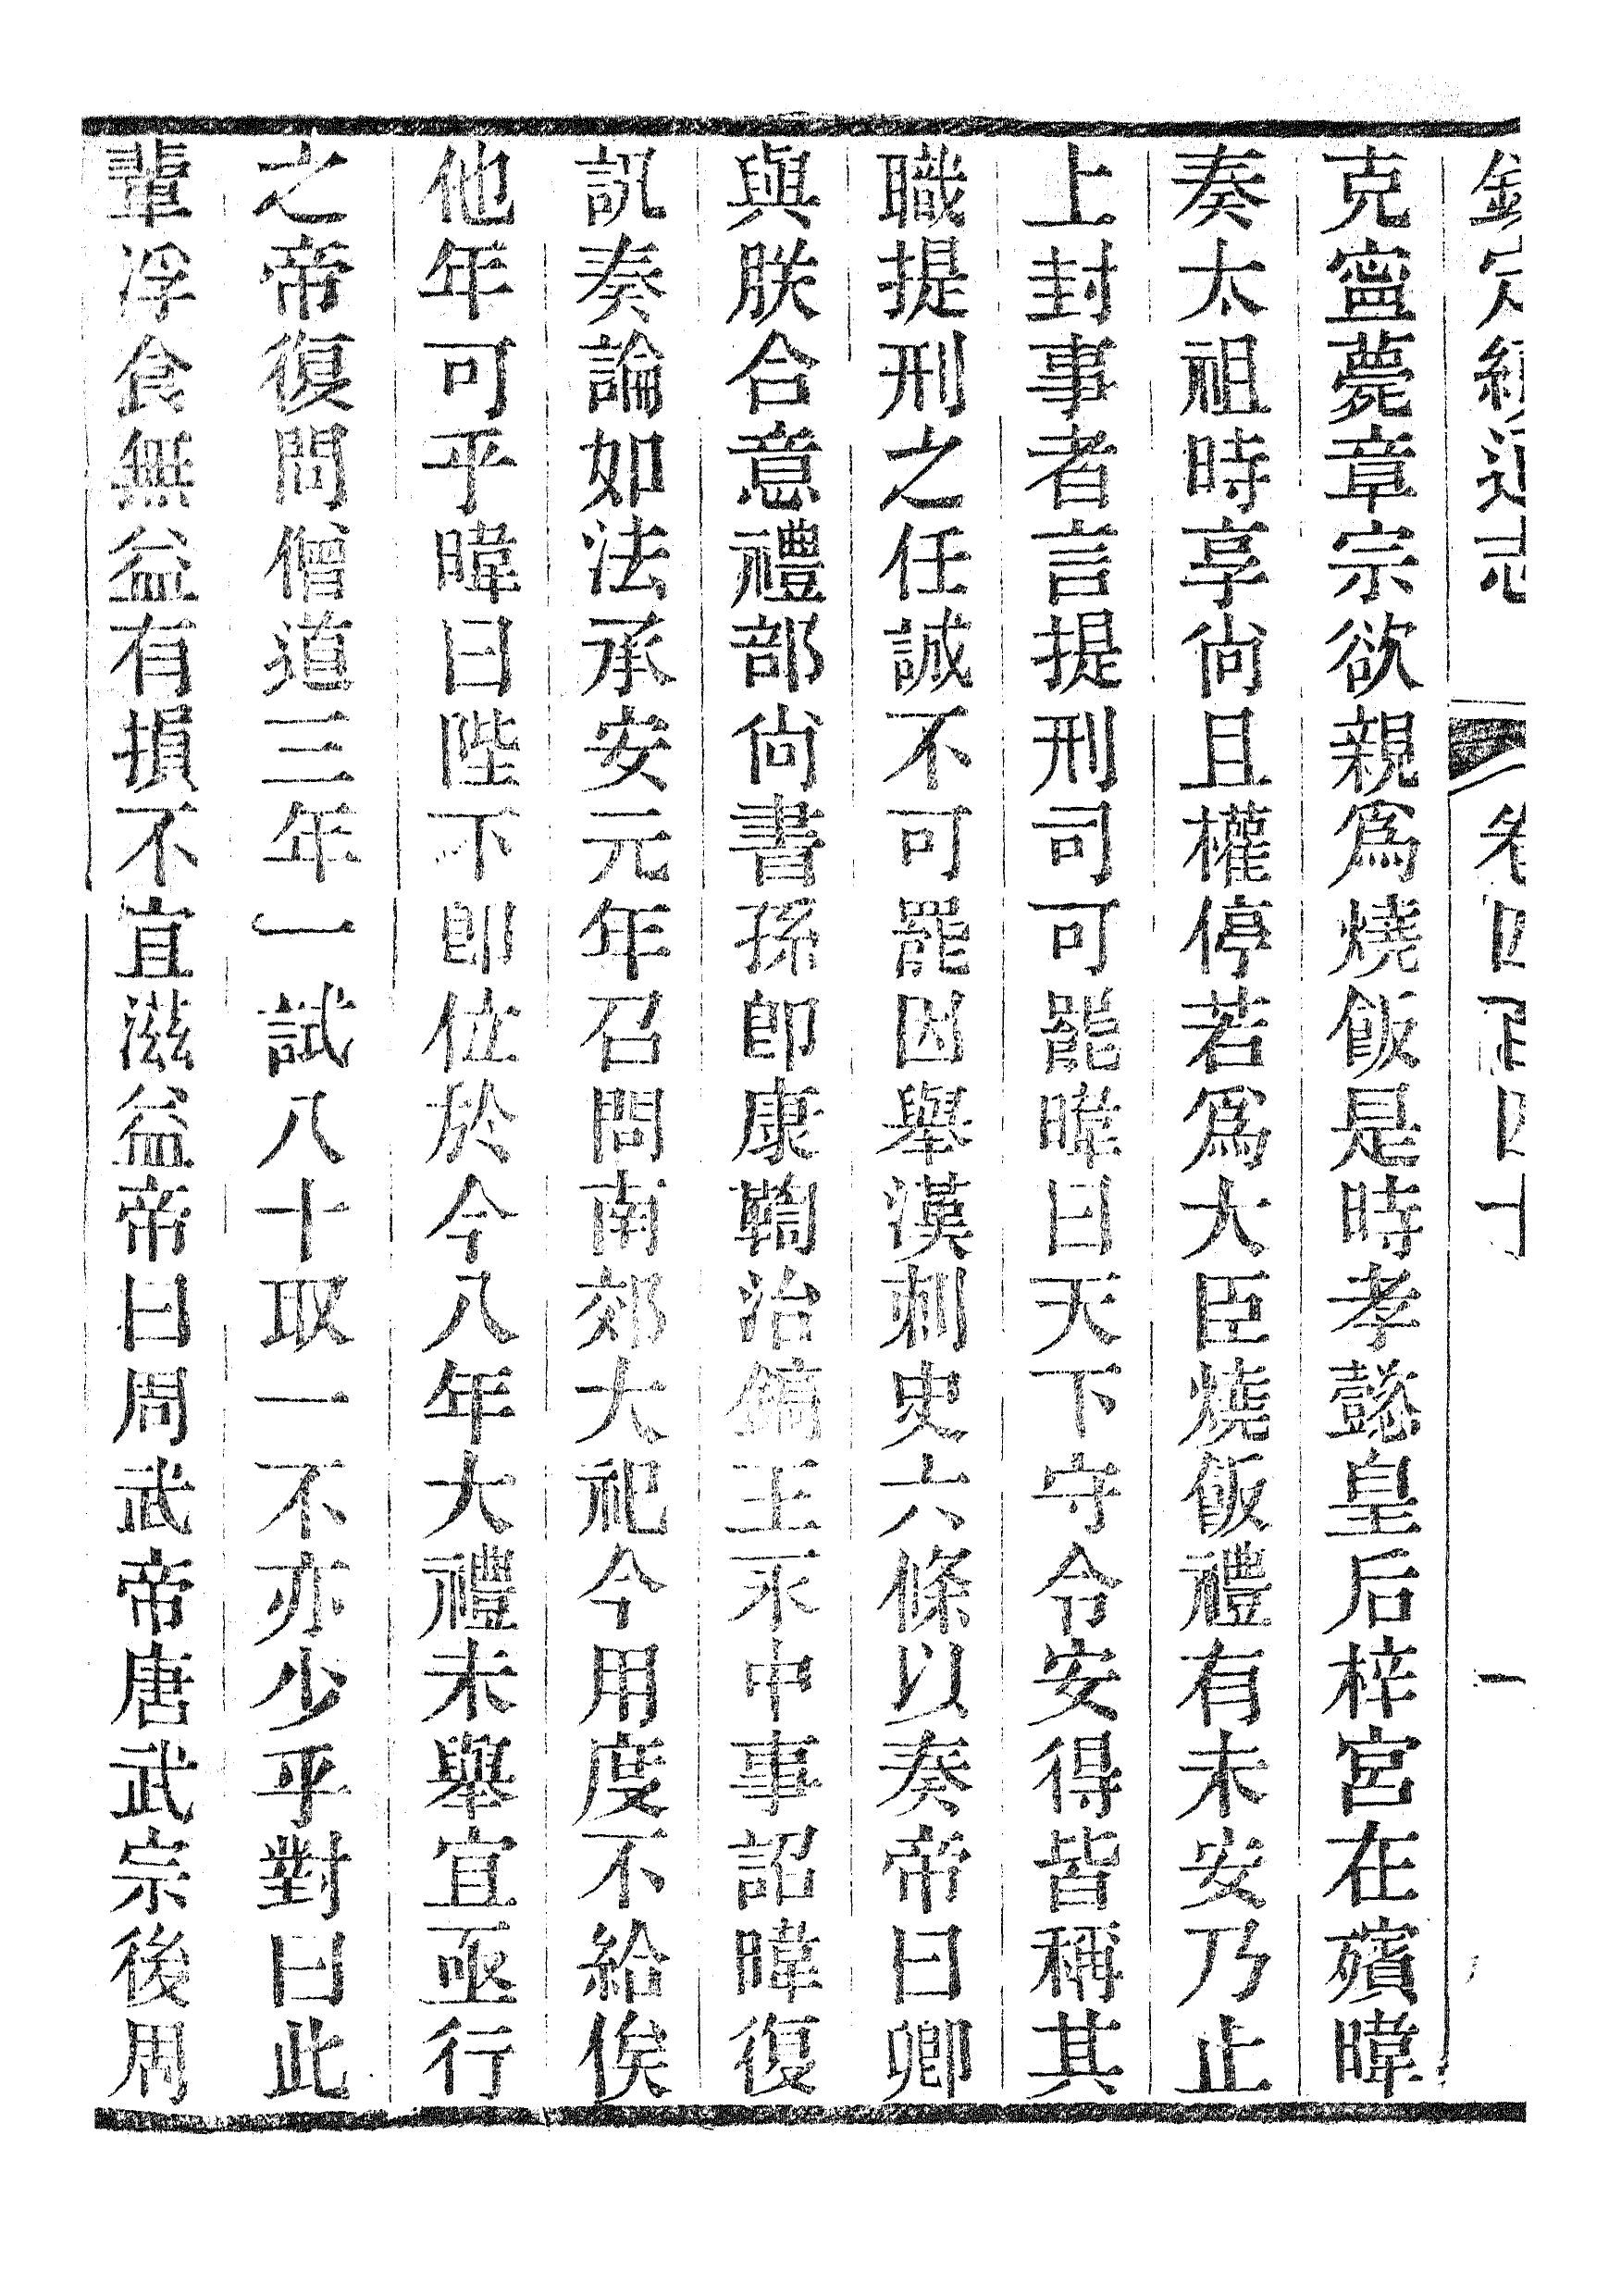 欽定續通志 卷四百四十 一
克寗薨章宗欲親爲燒飯是時孝懿皇后梓宮在殯暐
奏太祖時享尚且權停若爲大臣燒飯禮有未安乃止
上封事者言提刑司可罷暐曰天下守令安得皆稱其
職提刑之任誠不可罷因舉漢刺史六條以奏帝曰卿
與朕合意禮部尚書孫卽康鞫治鎬王永中事詔暐復
訊奏論如法承安元年召問南郊大祀今用度不給俟
他年可乎暐曰陛下卽位於今八年大禮未舉宜亟行
之帝復問僧道三年一試八十取一不亦少乎對曰此
輩浮食無益有損不宜滋益帝曰周武帝唐武宗後周